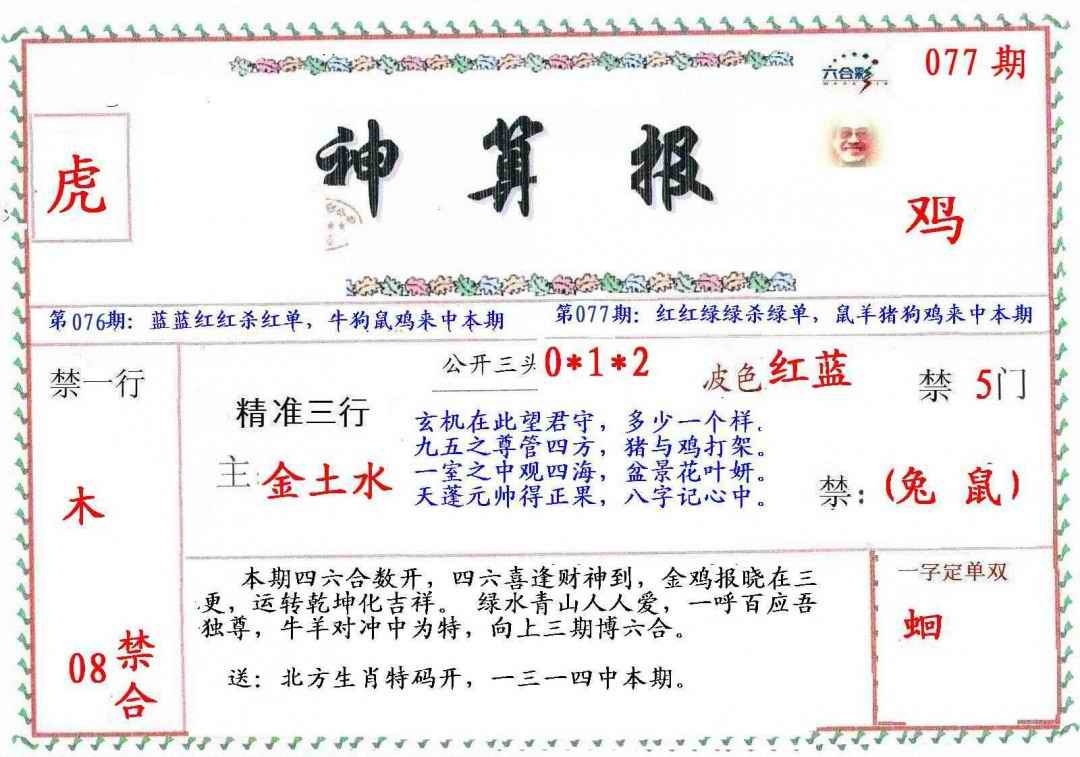 六合彩
077 期
虎
神算报
鸡
第076期：蓝蓝红红杀红单，牛狗鼠鸡来中本期
第077期：红红绿绿杀绿单，鼠羊猪狗鸡来中本期
禁一行
木
08 禁合
公开三头 0*1*2
波色 红蓝
禁 5门
精准三行
主: 金土水
玄机在此望君守，多少一个样.
九五之尊管四方，猪与鸡打架。
一室之中观四海，盆景花叶妍。
天蓬元帅得正果，八字记心中。
禁：(兔 鼠)
本期四六合数开，四六喜逢财神到，金鸡报晓在三
更，运转乾坤化吉祥。 绿水青山人人爱，一呼百应吾
独尊，牛羊对冲中为特，向上三期博六合。
送：北方生肖特码开，一三一四中本期。
一字定单双
蛔